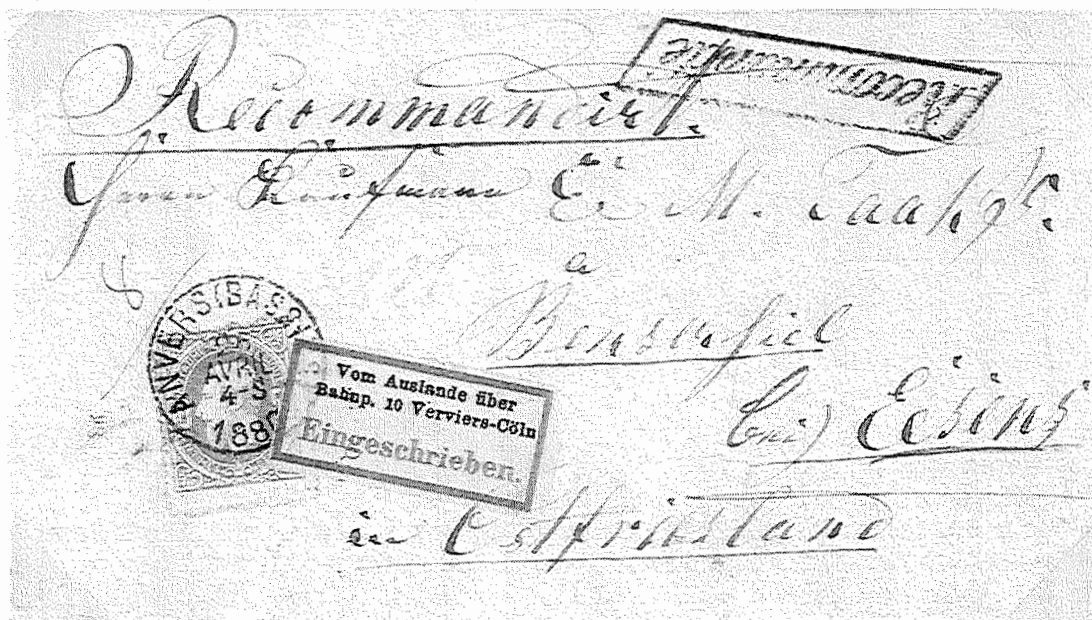 Recommandirt.
Recommandirt
Herrn Kaufmann E. M.
in
Bensersiel
bei Esens
in Ostfriesland
ANVERS (BASSI
AVRIL
4-S
1880
Vom Auslande über
Bahnp. 10 Verviers-Cöln
Eingeschrieben.